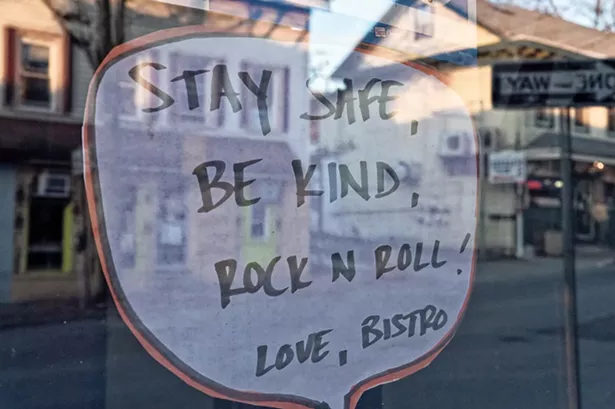 STAY SAFE,
BE KIND,
ROCK N ROLL!
LOVE, BISTRO
ONE WAY